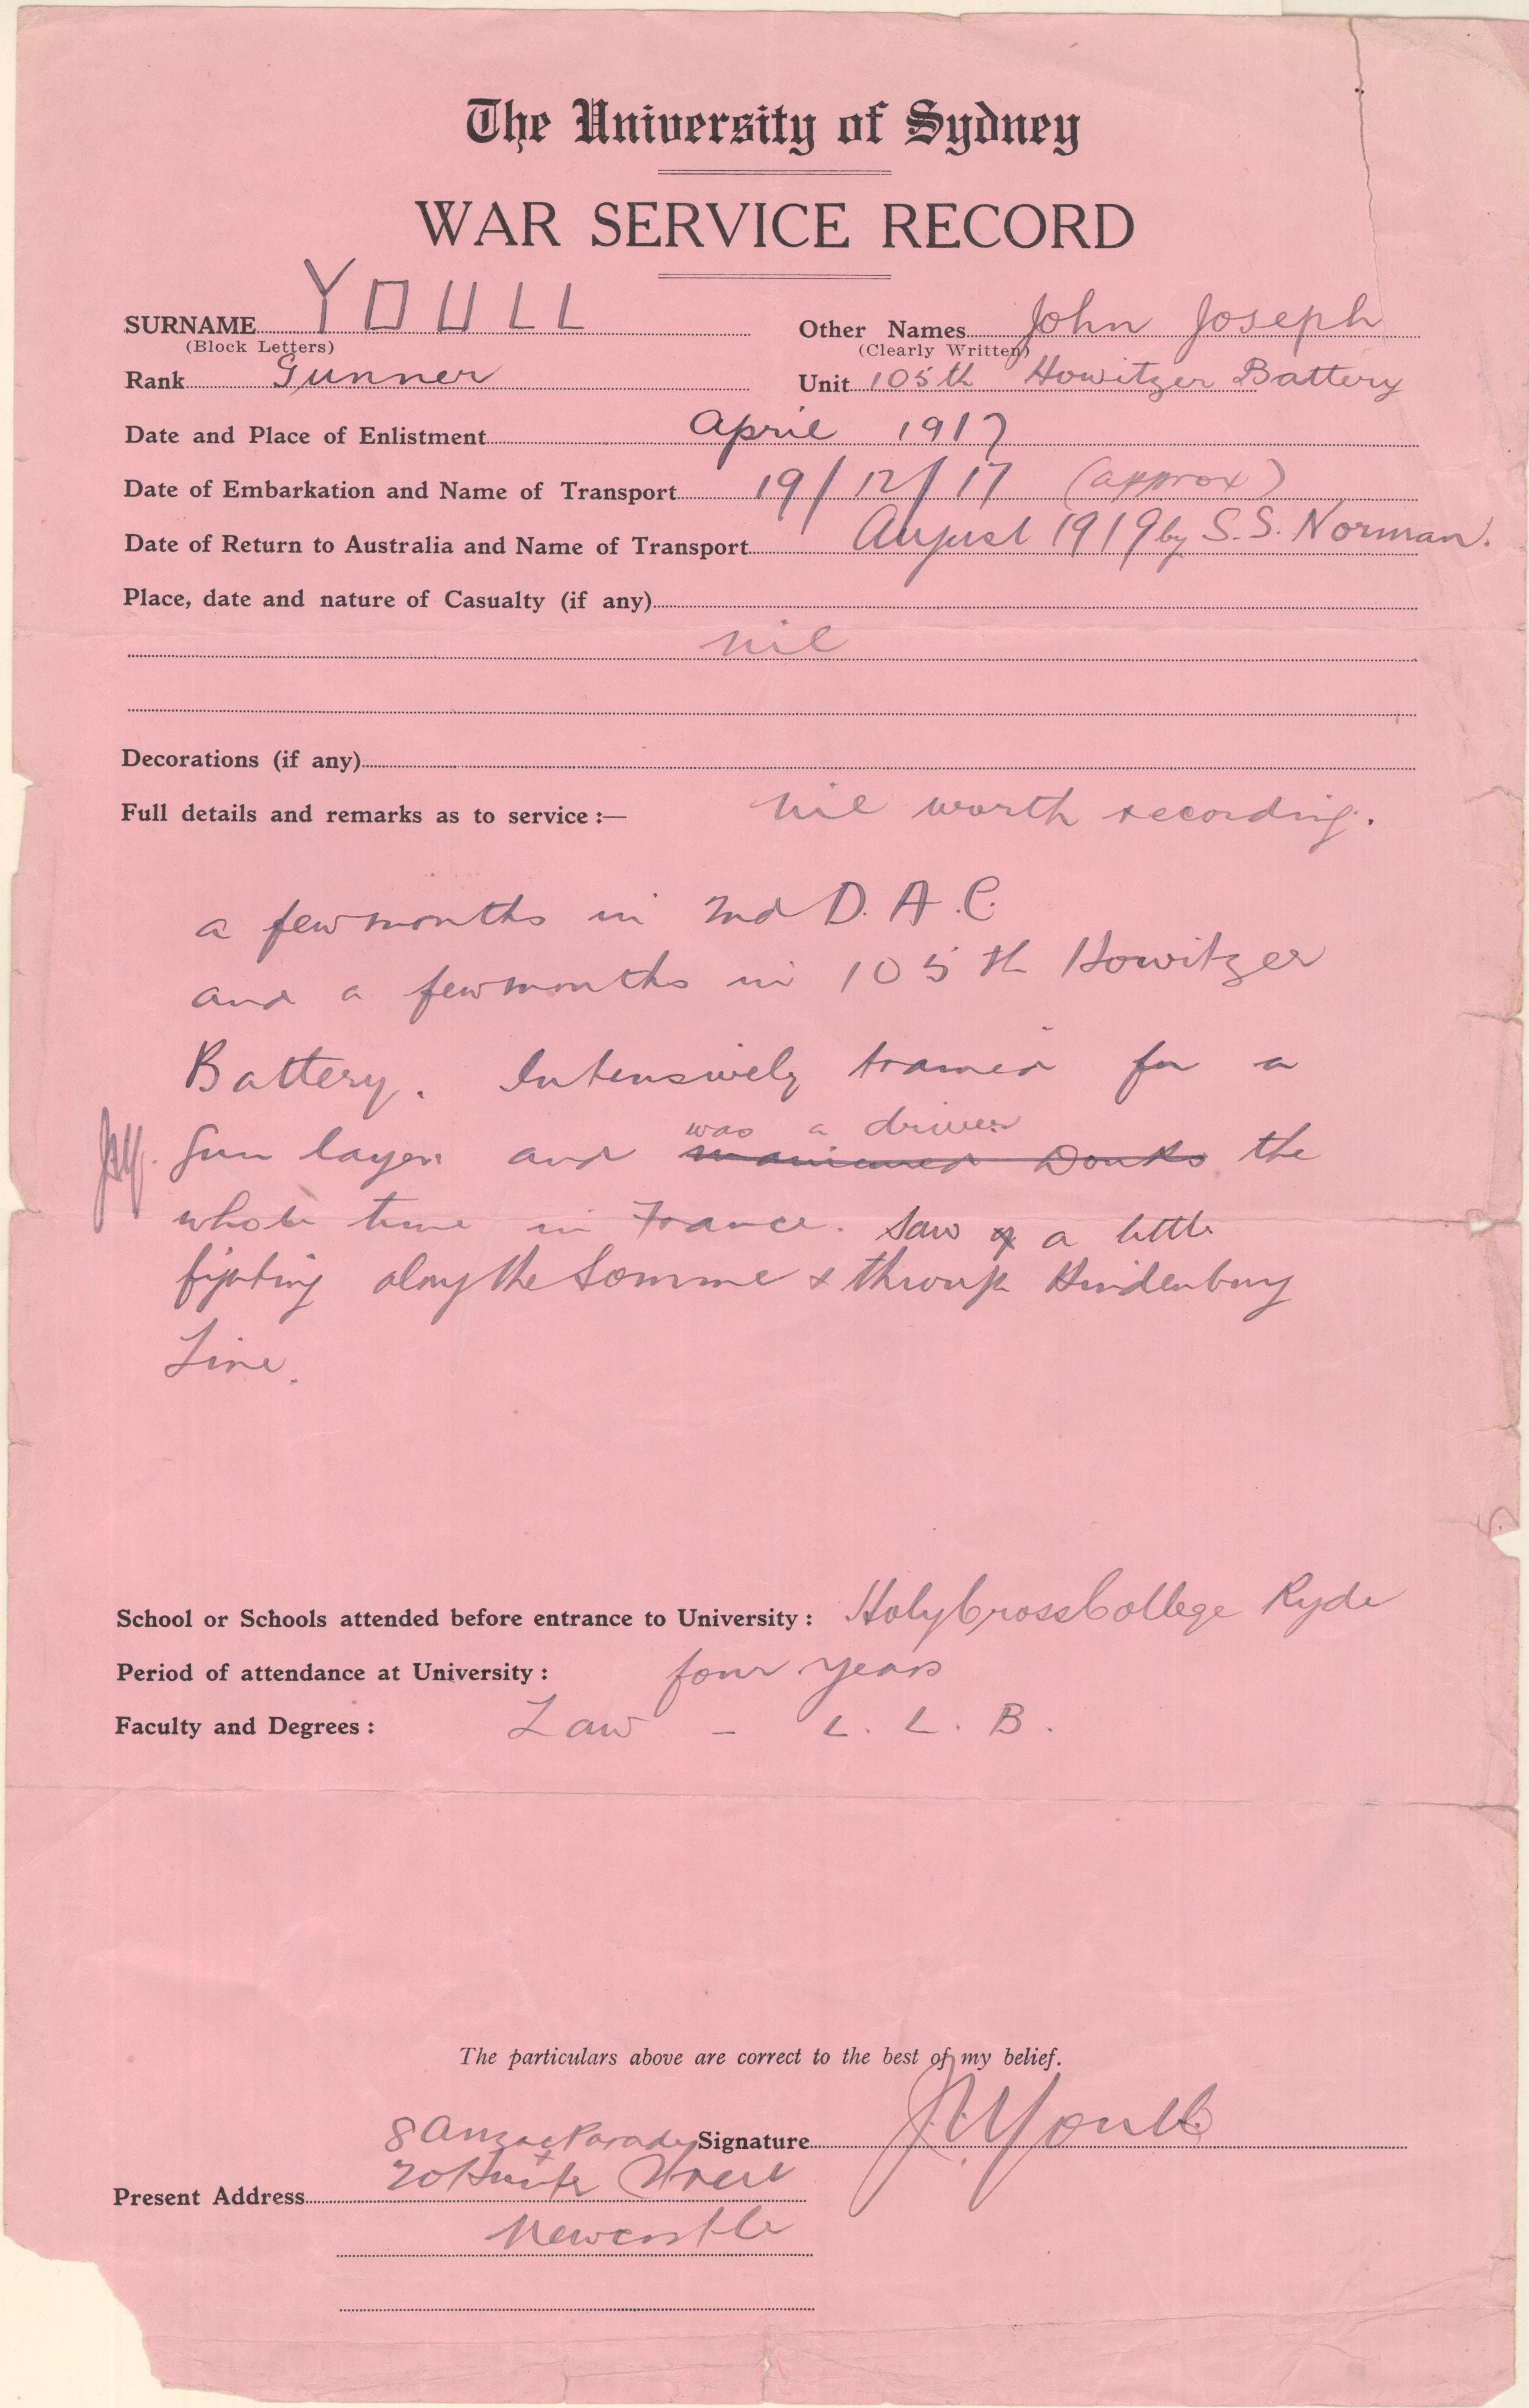 The University of Sydney
WAR SERVICE RECORD
SURNAME YOULL Other Names John Joseph
(Block Letters) (Clearly Written)
Rank Gunner Unit 105th Howitzer Battery
Date and Place of Enlistment April 1917
Date of Embarkation and Name of Transport 19/12/17 (approx)
Date of Return to Australia and Name of Transport August 1919 by S.S. Norman.
Place, date and nature of Casualty (if any)
nil
Decorations (if any)
Full details and remarks as to service:— nil worth recording.
a few months in 2nd D.A.C.
and a few months in 105th Howitzer
Battery. Intensively trained for a
was a driver
Gun layer and manicured Donks the
whole time in France. Saw a little
fighting along the Somme & through Hindenburg
Line.
School or Schools attended before entrance to University: Holy Cross College Ryde
Period of attendance at University: four years
Faculty and Degrees: Law - L.L.B.
The particulars above are correct to the best of my belief.
8 Anzac Parade Signature J.J. Youll
Present Address 20 Hunter Street
Newcastle